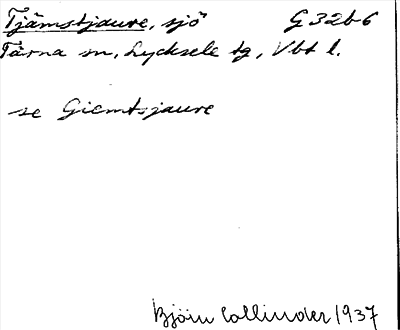 Tjämstjaure, sjö G 32b6
Tärna sn, Lycksele tg, Vbt l.
se Giemtsjaure
Björn Collinder 1937